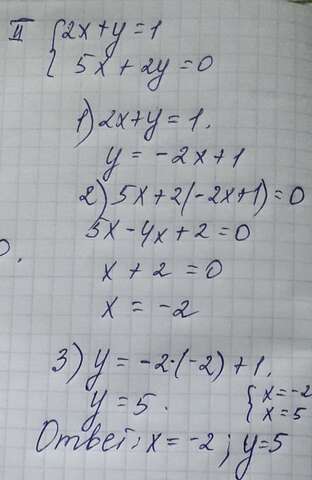 II { 2x+y=1
5x+2y=0
1) 2x+y=1.
y = -2x+1
2) 5x+2(-2x+1)=0
5x-4x+2=0
0.
x+2=0
x = -2
3) y = -2·(-2)+1.
y = 5. { x=-2
x=5
Ответ: x=-2; y=5